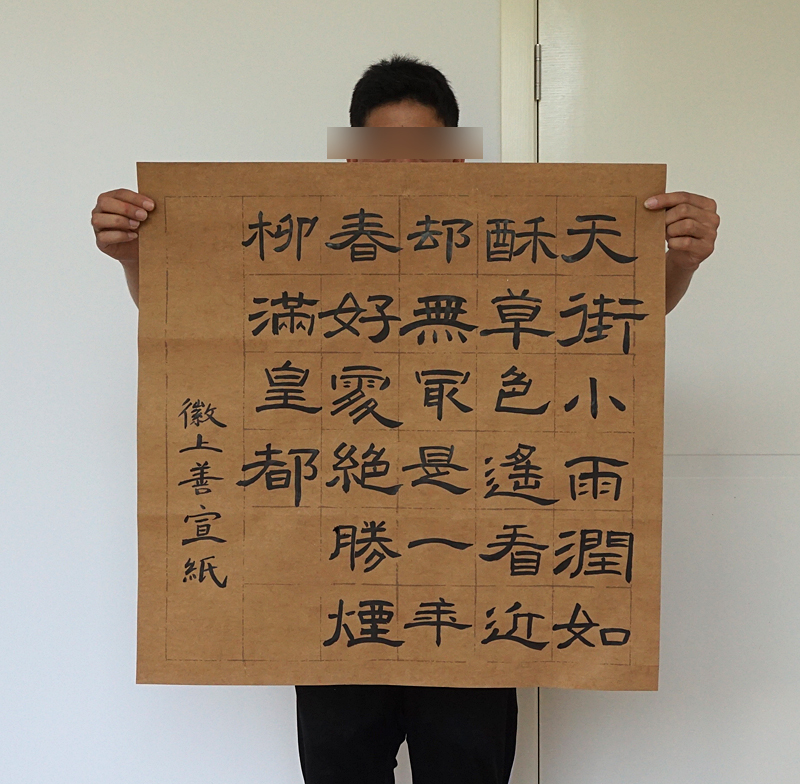 天街小雨潤如
酥草色遙看近
却無冣是一年
春好處絶勝煙
柳滿皇都
徽上善宣紙